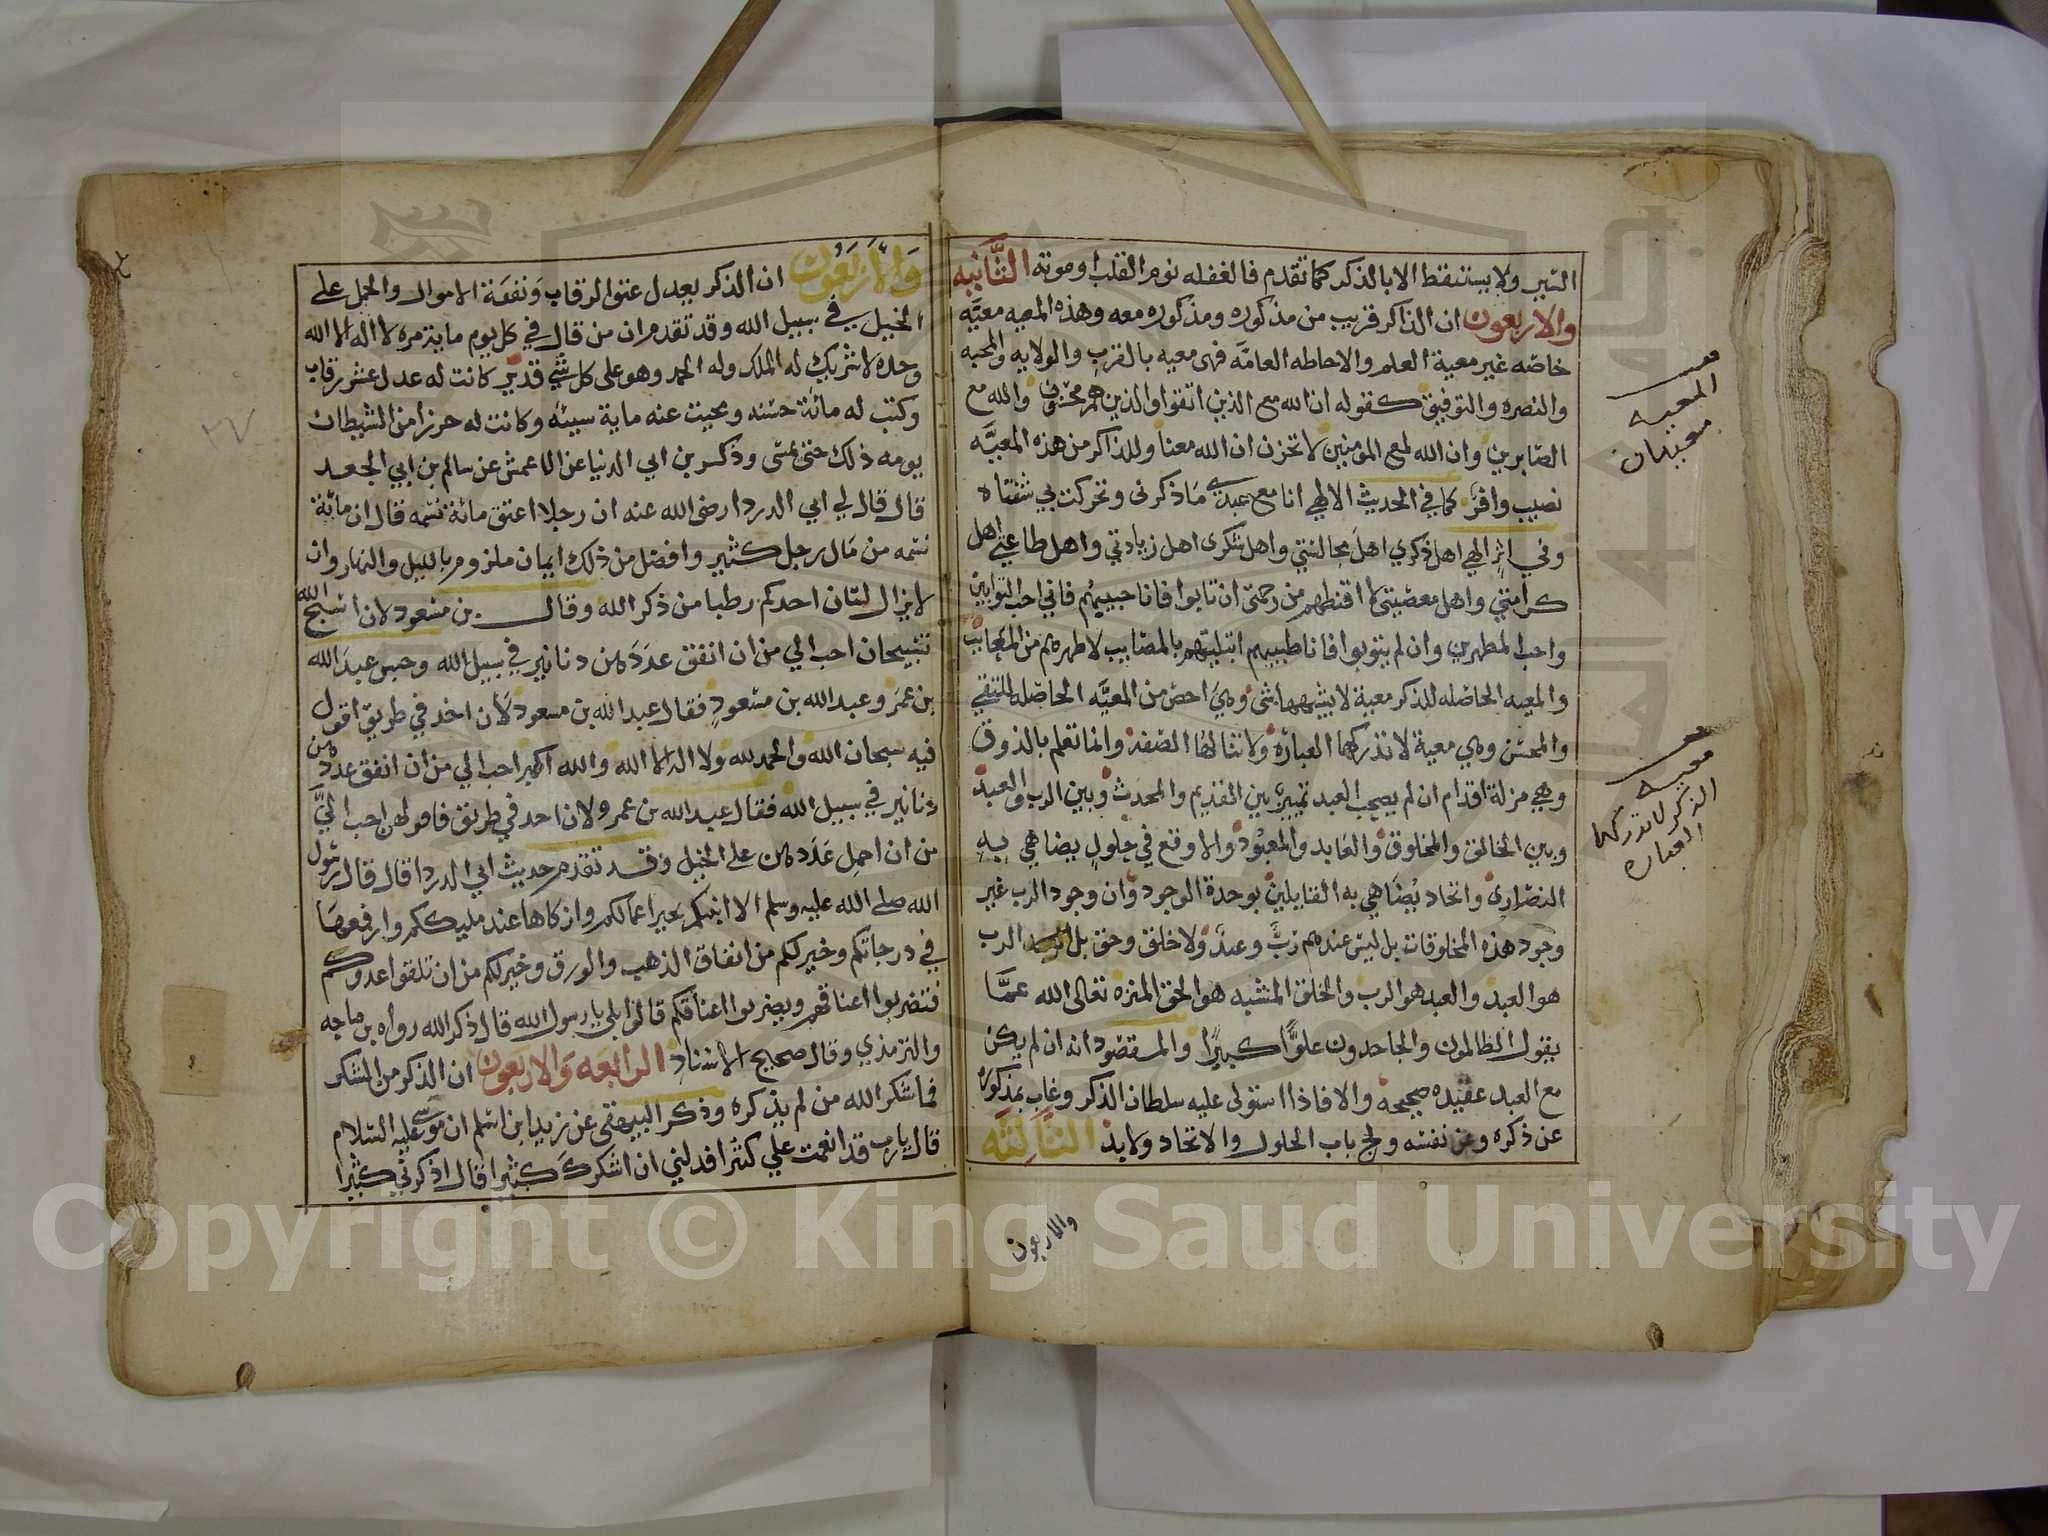 السير ولا يستيقظ الا بالذكر كما تقدم فالغفله نوم القلب او موته الثانيه
والاربعون ان الذاكر قريب من مذكوره ومذكوره معه وهذه المعيه معيَّه
خاصّه غير معية العلم والاحاطه العامَّه فهى معيه بالقرب والولايه والمحبه
والنصره والتوفيق كقوله ان الله مع الذين اتقوا والذين هم محسنون والله مع
الصّابرين وان الله لمع المومنين لا تحزن ان الله معنا وللذاكر من هذه المعيَّه
نصيب وافرٌ كما في الحديث الالهي انا مع عبدي مَا ذكرنى وتحركت بي شفتاه
وفي اثر الهي اهل ذكري اهل مجالستي واهل شكرى اهل زيادتي واهل طاعتي اهل
كرامتي واهل معصيتي لا اقنطهم من رحمتى ان تابوا فانا حبيبهُم فاني احب التوابين
واحب المطهرين وان لم يتوبوا فانا طبيبهم ابتليتهم بالمصايب لاطهرهم من المعايب
والمعيه الحاصله للذكر معية لا يشبهها شى وهيَ اخص من المعيَّه الحاصله للمتقي
والمحسن وهي معية لا تدركها العبارة ولا تنالها الصّفة وانما تعلم بالذوق
وهي مزلة اقدام ان لم يصحب العبد تمييز بين القديم والمحدث وبين الرب والعبد
وبين الخالق والمخلوق والعَابد والمعبُود والا وقع في حلول يضاهي به
النصَارى واتحاد يُضَاهي به القايلين بوحدة الوجود وان وجود الرب غير
وجود هذه المخلوقات بل ليس عندهم ربٌّ وعبدٌ ولا خلق وحق بل الرب
هو العبد والعبد هو الرب والخلق المشبه هو الحق المنزه تعالى الله عمَّا
يقول الظالمون والجاحدون علوًّا كبيرًا والمقصود انه ان لم يكن
مع العبد عقيده صحيحة والا فاذا استولى عليه سلطان الذكر وغاب بمذكوره
عن ذكره وعن نفسه ولج باب الحلول والاتحاد ولابد الثَّالِثَه
والاربعون
المعيه
معيتان
معيه
الذكر لا تدركها
العباره
وَالأَربَعُون ان الذكر يعدل عتق الرقاب وَنفقة الاموال والحمل على
الخيل في سبيل الله وقد تقدم ان من قال في كل يوم ماية مره لا اله الا الله
وحده لا شريك له الملك وله الحمد وهو على كل شي قدير كانت له عدل عشر رقاب
وكتب له مائة حسنه ومحيت عنه ماية سيئه وكانت له حرزا من الشيطان
يومه ذلك حتى يمسى وذكر بن ابي الدنيا عن الاعمش عن سالم بن ابي الجعد
قال قال لي ابي الدردا رضى الله عنه ان رجلا اعتق مائة نسَمه قال ان مائة
نسَمه من مَال رجل كثير وافضل من ذلك ايمان ملزوم بالليل والنهار وان
لا يزال لسَان احدكم رطبا من ذكر الله وقال بن مسعود لان اسبح الله
تسبيحات احب الي من ان انفق عدَدَهن دنانير في سبيل الله وجلس عبد الله
بن عمَر وعبد الله بن مسعود فقال عبد الله بن مسعود لأن اخذ في طريق اقول
فيه سبحان الله والحمد لله ولا اله الا الله والله اكبر احب الي من ان انفق عددهن
دنانير في سبيل الله فقال عبد الله بن عمر ولان اخذ في طريق فاقولهن احب اليَّ
من ان احمل عَدَدهن على الخيل وقد تقدم حديث ابي الدردا قال قال رسول
الله صلى الله عليه وسلم الا انبكم بخير اعمالكم وازكاها عند مليككم وارفعها
في درجاتكم وخير لكم من انفاق الذهب والورق وخير لكم من ان تلقوا عدوكم
فتضربوا اعناقهم ويضربوا اعناقكم قالوا بلى يا رسول الله قال ذكر الله رواه بن ماجه
والترمذي وقال صحيح الاسناد الرابعَه وَالاربعون ان الذكر من الشكر
فما شكر الله من لم يذكره وذكر البيهقى عن زيد ابن اسلم ان موسى عليه السّلام
قال يارب قد انعمت علي كثيرا فدلني ان اشكركَ كثيرا قال اذكرني كثيرا
٢٧
Copyright © King Saud University